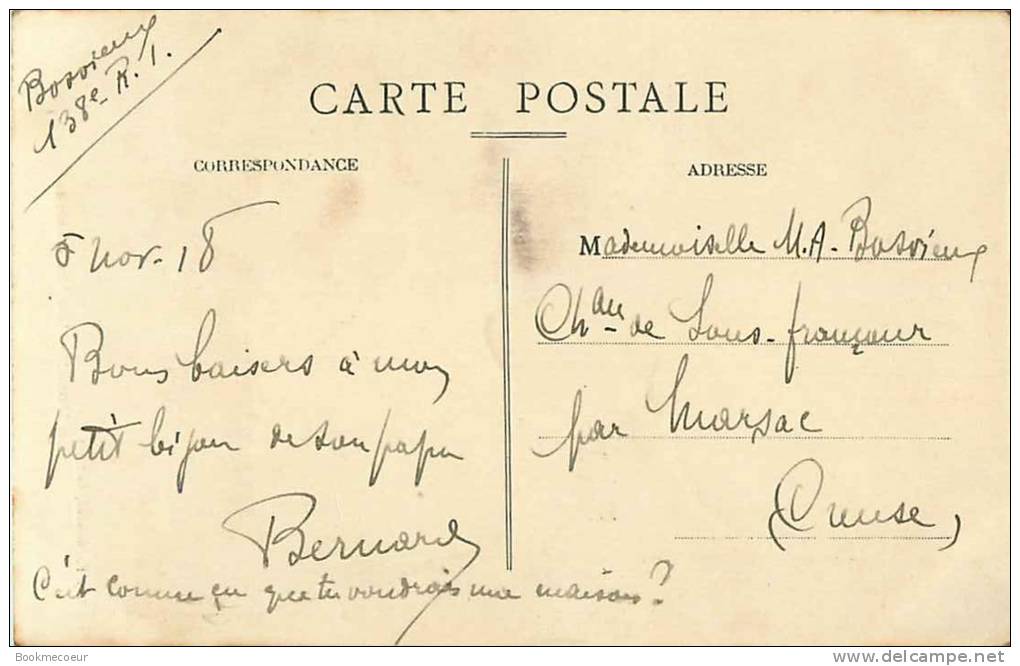 Bosvieux
138e R.I.
CARTE POSTALE
CORRESPONDANCE
ADRESSE
8 Nov. 18
Bons baisers à mon
petit bijou de son papa
Bernard
C'est comme ça que tu voudrais une maison?
Mademoiselle M.A. Bosvieux
Chau de Sous-
par Marsac
(Creuse)
Bookmecoeur